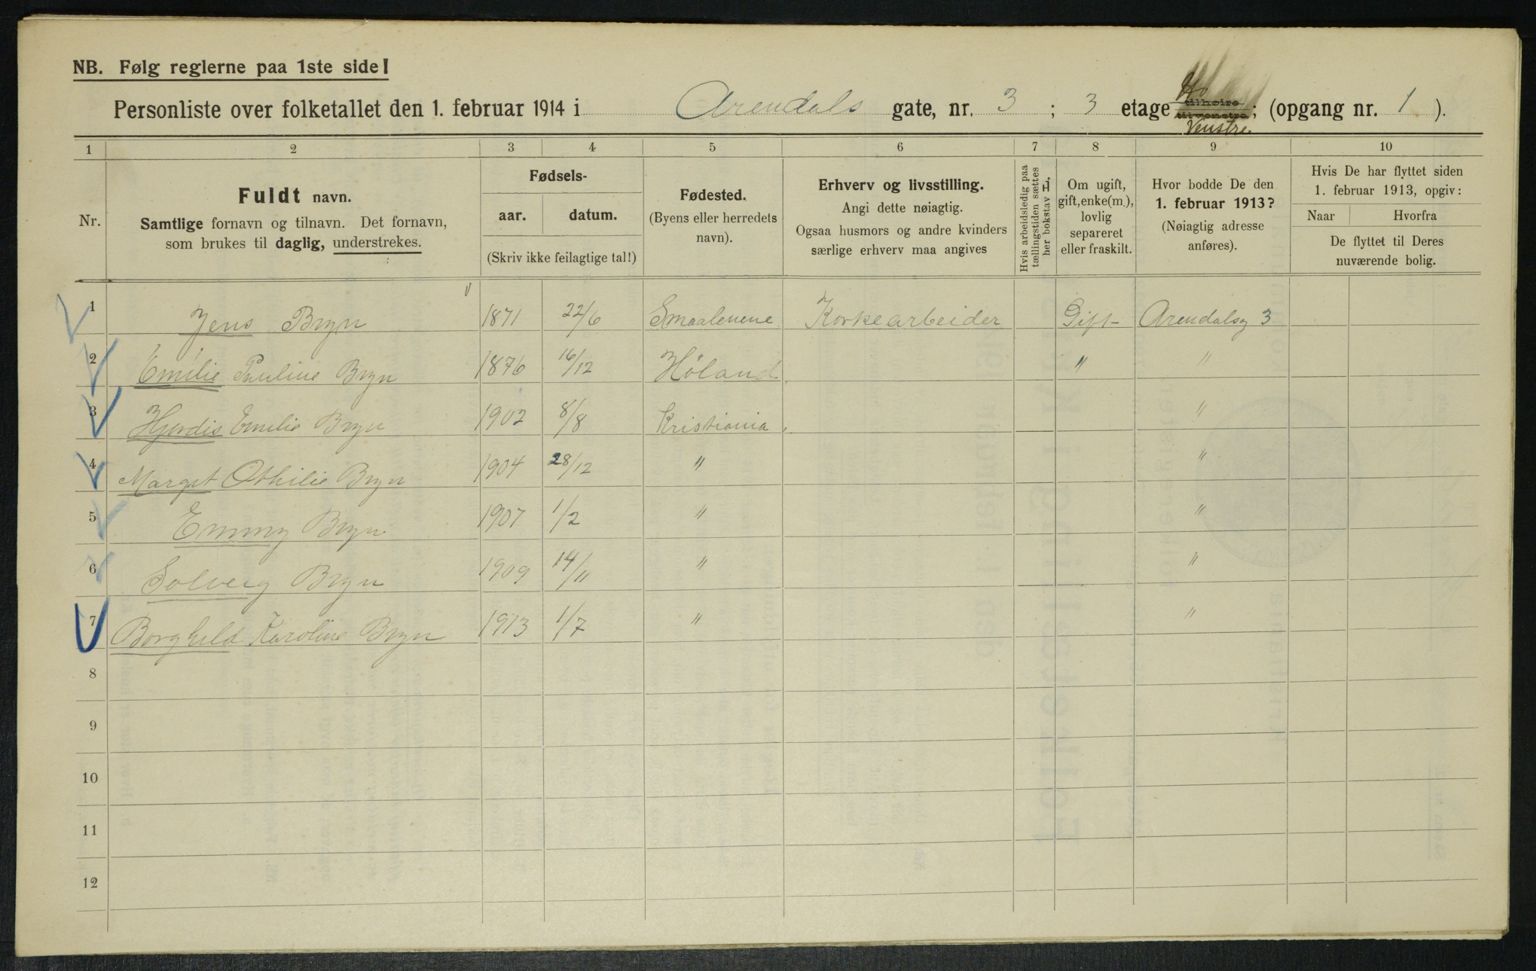 NB. Følg reglerne paa 1ste side!
Personliste over folketallet den 1. februar 1914 i Arendals gate, nr. 3; 3 etage tilhøire tilvenstre Venstre; (opgang nr. 1).
1 2 3 4 5 6 7 8 9 10
Nr.
Fuldt navn.
Samtlige fornavn og tilnavn. Det fornavn,
som brukes til daglig, understrekes.
Fødsels-
aar. datum.
(Skriv ikke feilagtige tal!)
Fødested.
(Byens eller herredets
navn).
Erhverv og livsstilling.
Angi dette nøiagtig.
Ogsaa husmors og andre kvinders
særlige erhverv maa angives
Hvis arbeidsledig paa
tællingstiden sættes
her bokstav L.
Om ugift,
gift, enke(m.),
lovlig
separeret
eller fraskilt.
Hvor bodde De den
1. februar 1913?
(Nøiagtig adresse
anføres).
Hvis De har flyttet siden
1. februar 1913, opgiv:
Naar Hvorfra
De flyttet til Deres
nuværende bolig.
1 Jens Bryn 1871 22/6 Smaalenene Korkearbeider Gift Arendalsg 3
2 Emilie Pauline Bryn 1876 16/12 Høland. " "
3 Hjørdis Emilie Bryn 1902 8/8 Kristiania. "
4 Margit Othilie Bryn 1904 28/12 " "
5 Emmy Bryn 1907 1/2 " "
6 Solveig Bryn 1909 14/11 " "
7 Borghild Karoline Bryn 1913 1/7 " "
8
9
10
11
12